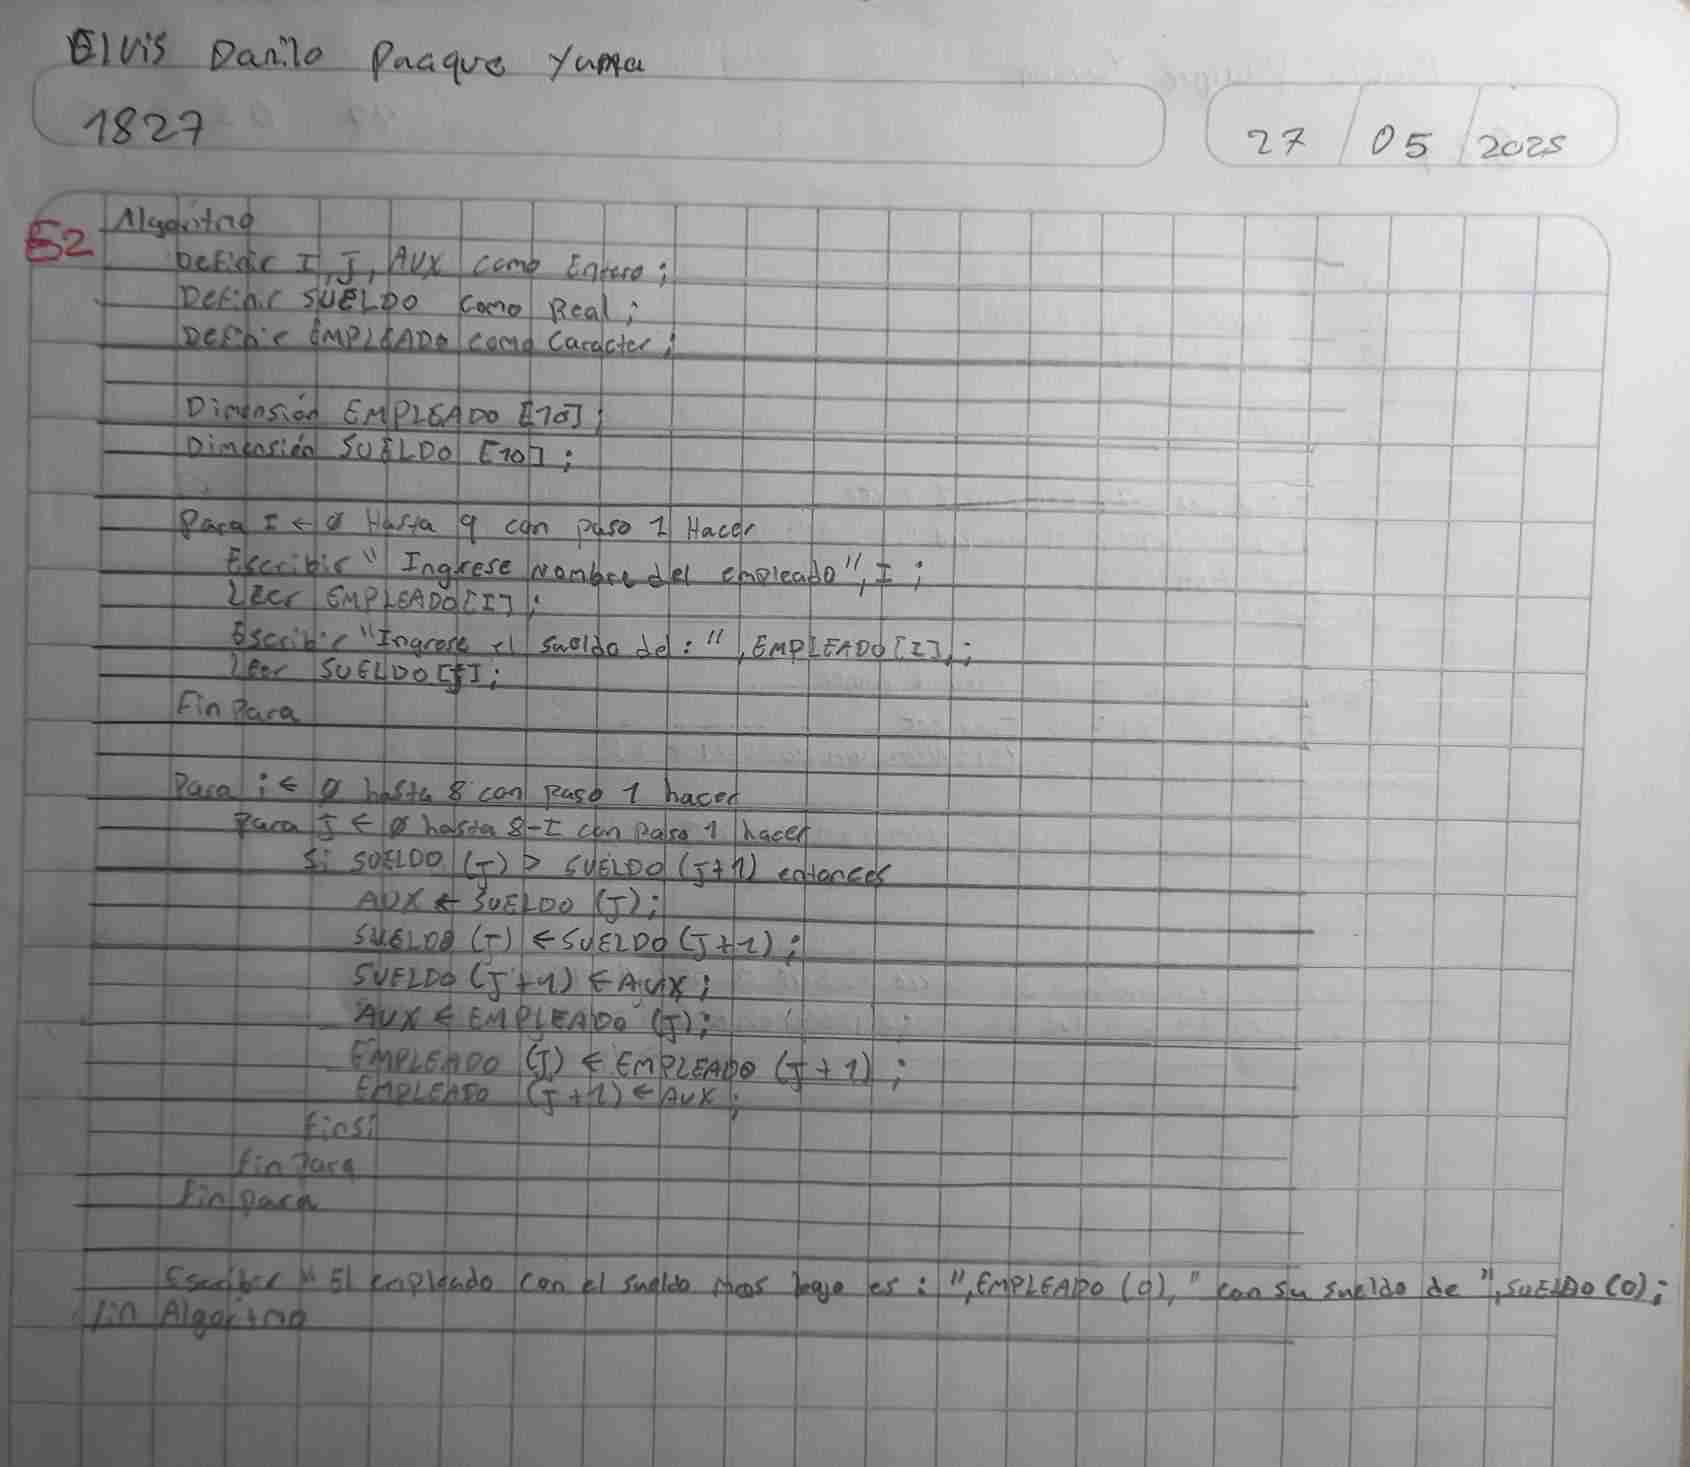 Elvis Danilo Paaque Yuma
1827
27 / 05 / 2025
E2
Algoritmo
Definir I, J, AUX como Entero;
Definir SUELDO como Real;
Definir EMPLEADO como Caracter;
Dimensión EMPLEADO [10];
Dimensión SUELDO [10];
Para I ← 0 Hasta 9 con paso 1 Hacer
Escribir " Ingrese Nombre del empleado", I ;
Leer EMPLEADO[I];
Escribir "Ingrese el sueldo del: ", EMPLEADO[I];
Leer SUELDO[I];
Fin Para
Para i ← 0 hasta 8 con paso 1 hacer
Para J ← 0 hasta 8-I con paso 1 hacer
Si SUELDO (J) > SUELDO (J+1) entonces
AUX ← SUELDO (J);
SUELDO (J) ← SUELDO (J+1);
SUELDO (J+1) ← AUX;
AUX ← EMPLEADO (J);
EMPLEADO (J) ← EMPLEADO (J+1) ;
EMPLEADO (J+1) ← AUX;
Finsi
Fin Para
Fin para
Escribir " El empleado con el sueldo mas bajo es : ", EMPLEADO (0), " con su sueldo de ", SUELDO (0);
Fin Algoritmo